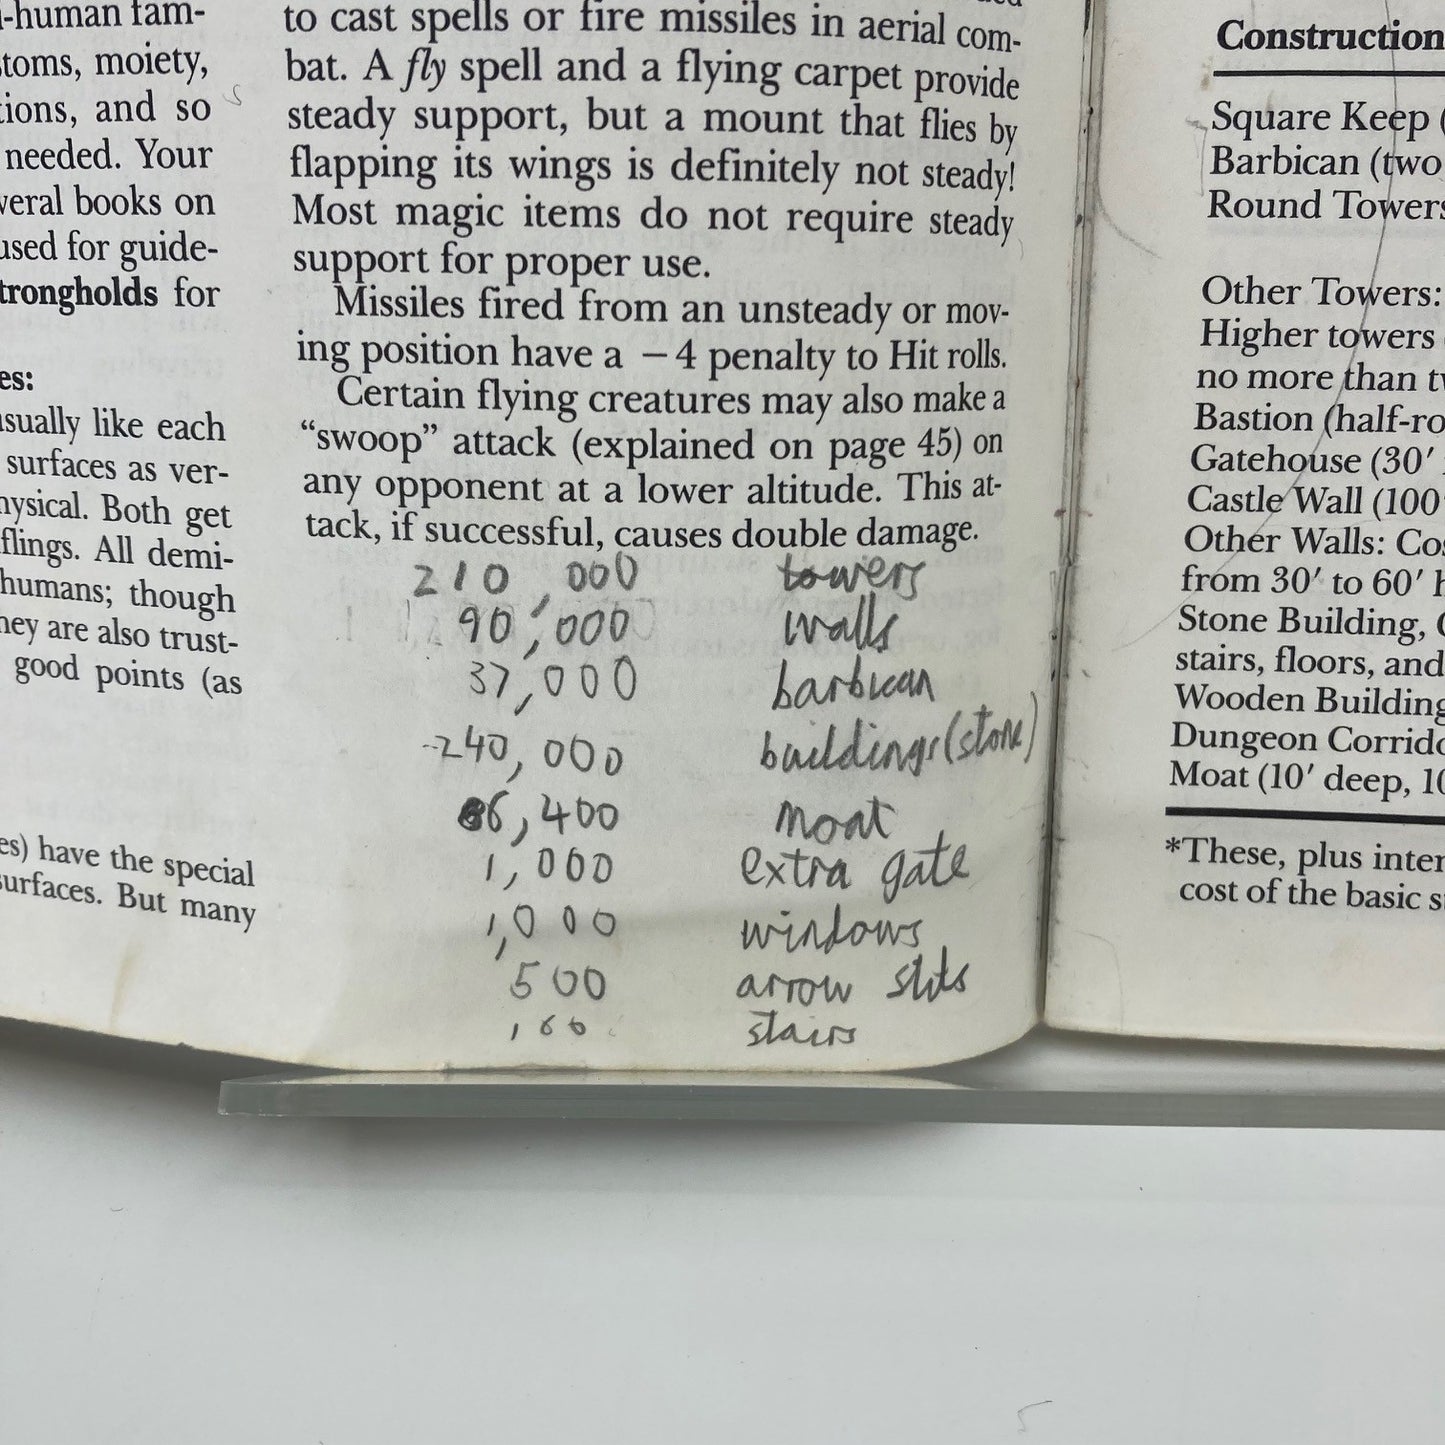 -human fam-
stoms, moiety,
tions, and so
needed. Your
veral books on
used for guide-
trongholds for
es:
usually like each
surfaces as ver-
hysical. Both get
flings. All demi-
humans; though
hey are also trust-
good points (as
es) have the special
surfaces. But many
to cast spells or fire missiles in aerial com-
bat. A fly spell and a flying carpet provide
steady support, but a mount that flies by
flapping its wings is definitely not steady!
Most magic items do not require steady
support for proper use.
Missiles fired from an unsteady or mov-
ing position have a −4 penalty to Hit rolls.
Certain flying creatures may also make a
"swoop" attack (explained on page 45) on
any opponent at a lower altitude. This at-
tack, if successful, causes double damage.
210,000 towers
90,000 walls
37,000 barbican
240,000 buildings (stone)
6,400 moat
1,000 extra gate
1,000 windows
500 arrow slits
100 stairs
Construction
Square Keep (
Barbican (two
Round Towers
Other Towers:
Higher towers
no more than tw
Bastion (half-ro
Gatehouse (30′
Castle Wall (100
Other Walls: Cos
from 30′ to 60′ h
Stone Building,
stairs, floors, and
Wooden Building
Dungeon Corrido
Moat (10′ deep, 10
*These, plus inter
cost of the basic s